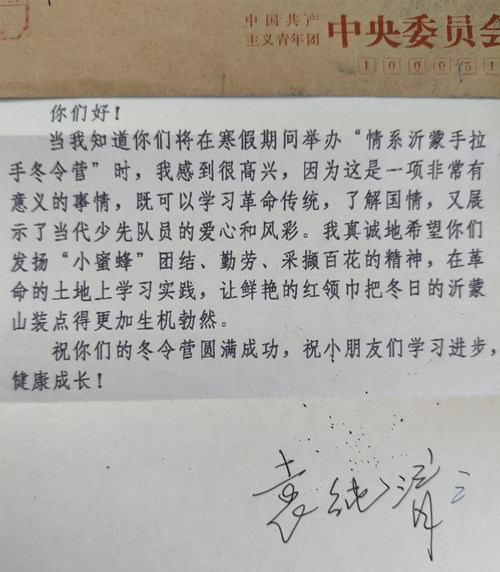 中国共产
主义青年团 中央委员会
100051
你们好！
当我知道你们将在寒假期间举办“情系沂蒙手拉
手冬令营”时，我感到很高兴，因为这是一项非常有
意义的事情，既可以学习革命传统，了解国情，又展
示了当代少先队员的爱心和风彩。我真诚地希望你们
发扬“小蜜蜂”团结、勤劳、采撷百花的精神，在革
命的土地上学习实践，让鲜艳的红领巾把冬日的沂蒙
山装点得更加生机勃然。
祝你们的冬令营圆满成功，祝小朋友们学习进步，
健康成长！
袁纯清